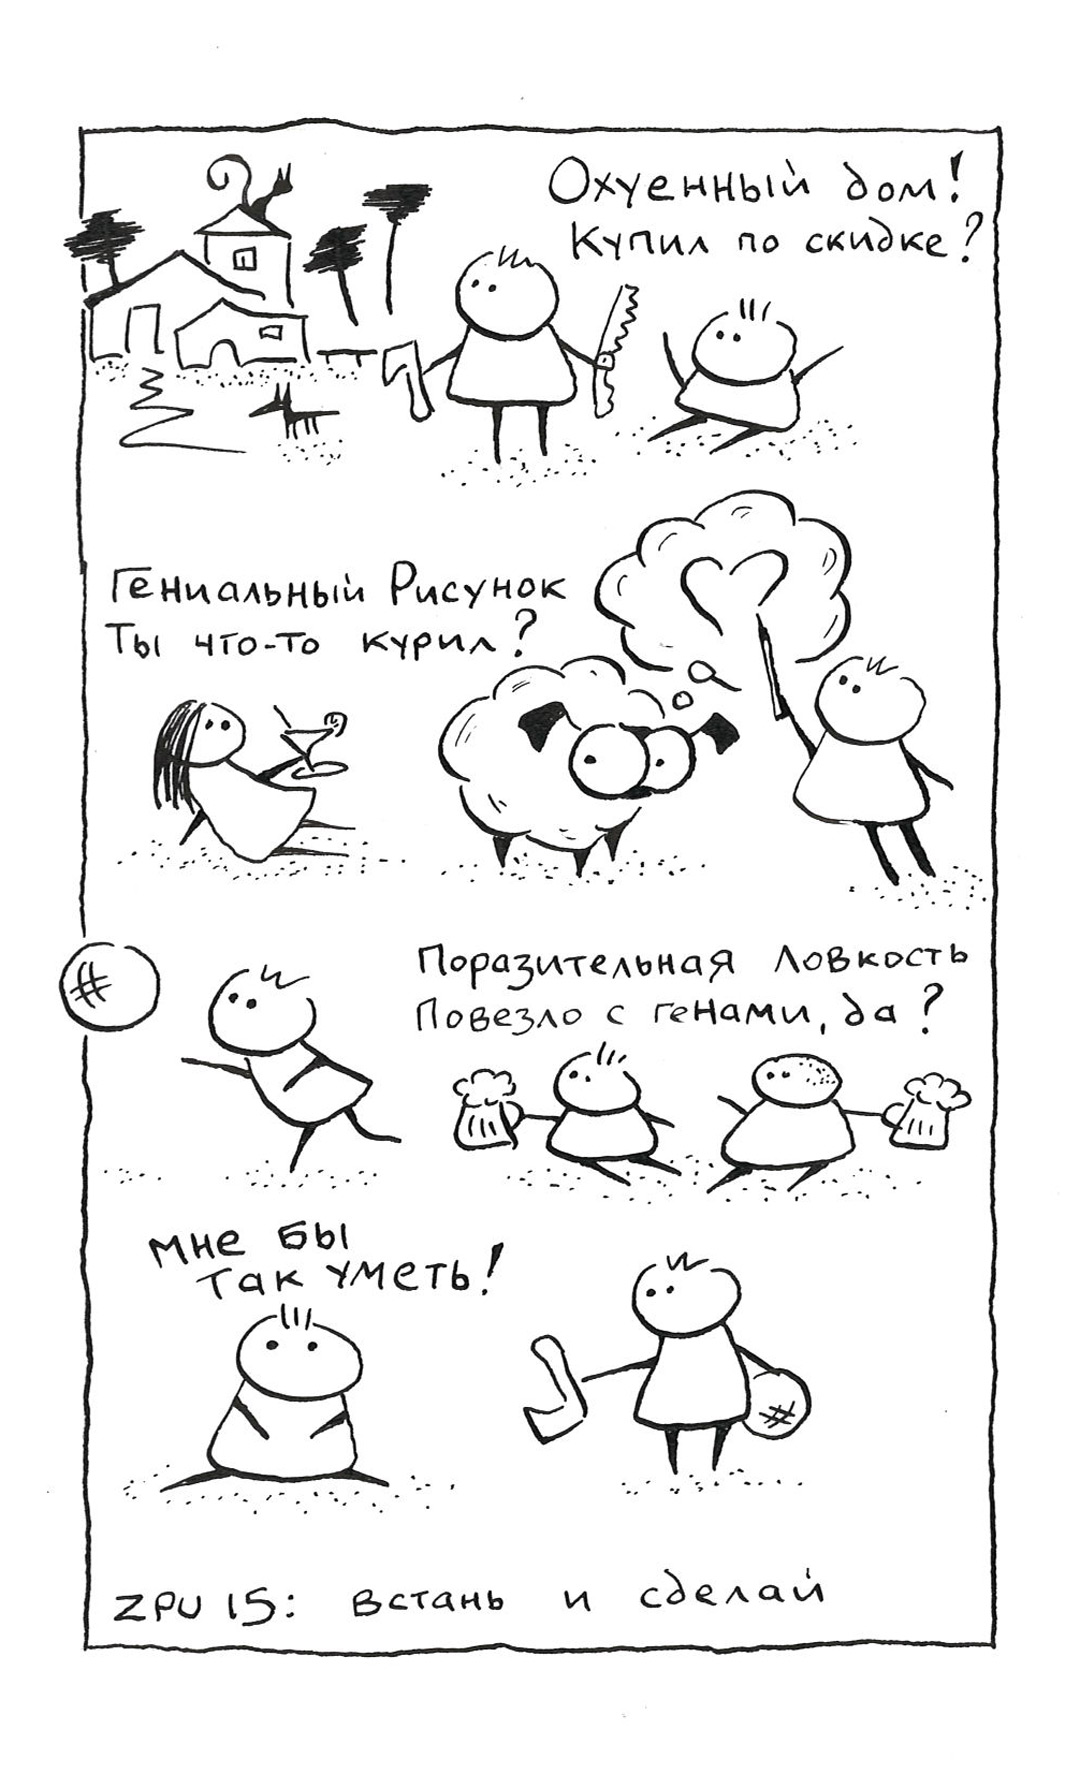 Охуенный дом!
Купил по скидке?
Гениальный Рисунок
Ты что-то курил?
Поразительная Ловкость
Повезло с генами, да?
мне бы
так уметь!
ZPU 15: встань и сделай